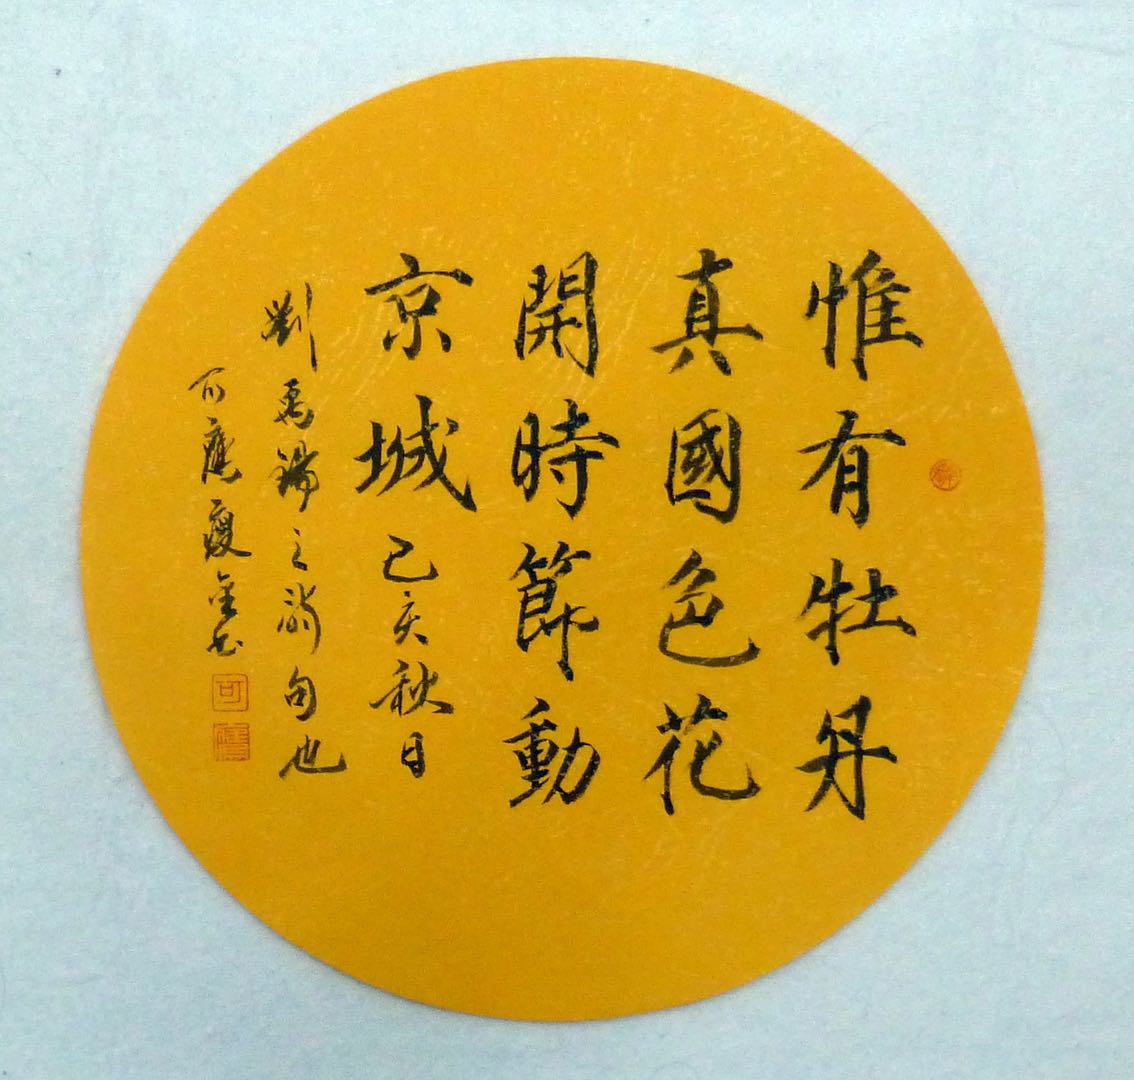 惟有牡丹
真國色花
開時節動
京城己亥秋日
劉禹錫之詩句也
可庵瘦金书
可